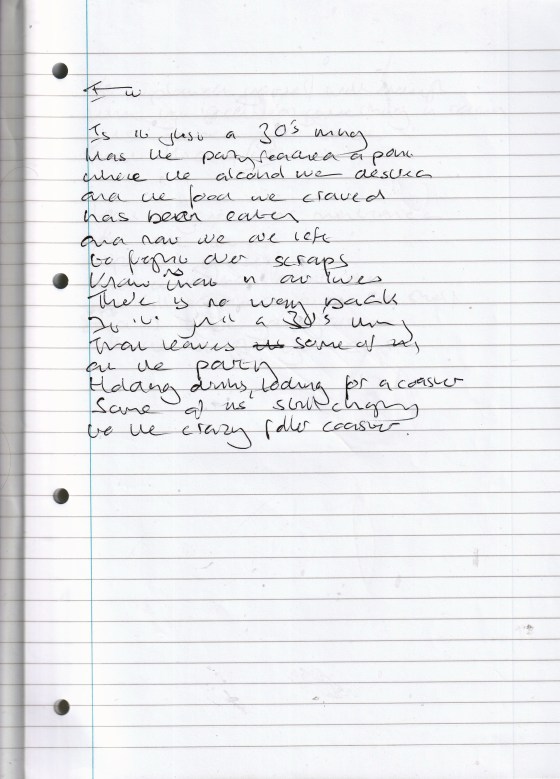 Is it just a 30's thing
Has the party reached a point
where the alcohol we desired
and the food we craved
has been eaten
and now we are left
to fight over scraps
Know that in our lives
There is no way back
Is it just a 30's thing
That leaves some of us,
at the party
Holding drinks, looking for a coaster
Some of us still clinging
to the crazy roller coaster.